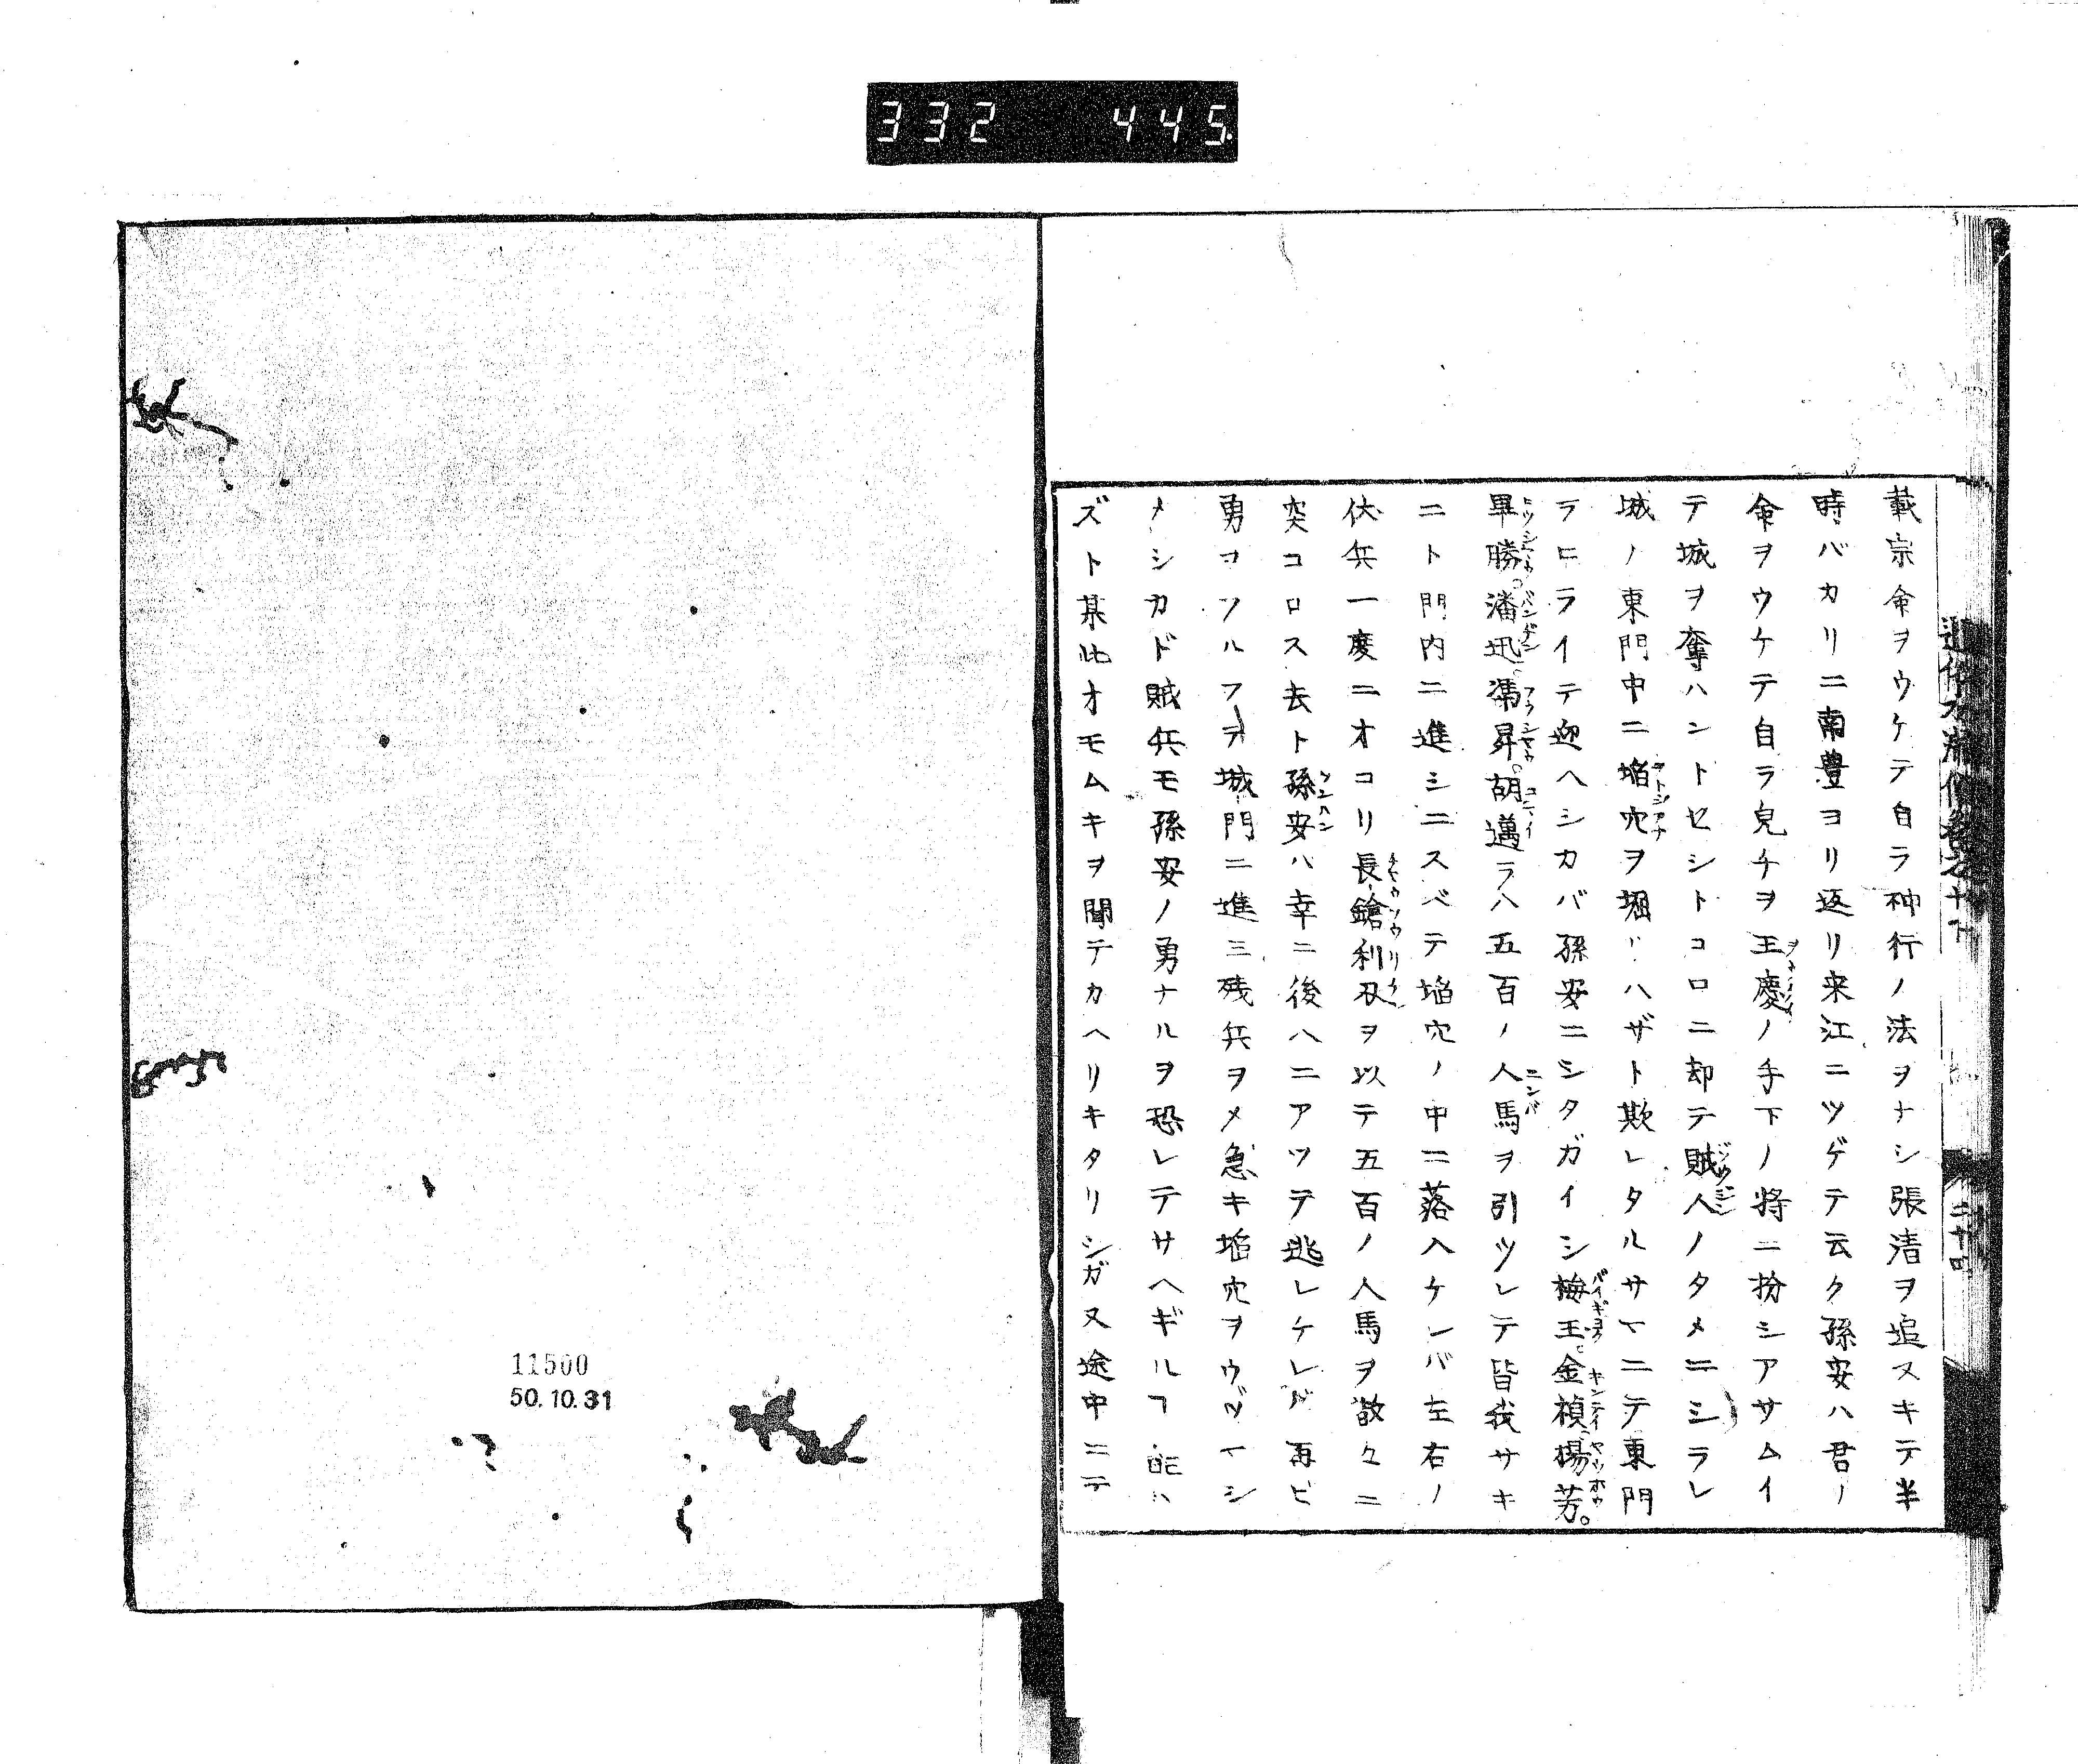 332 445
載宗命ヲウケテ自ラ神行ノ法ヲナシ張清ヲ追スキテ半
時バカリニ南豊ヨリ返リ来江ニツゲテ云ク孫安ハ君ノ
命ヲウケテ自ラ皃チヲ王慶ノ手下ノ将ニ扮シアサムイ
テ城ヲ奪ハントセシトコロニ却テ賊人ノタメニシラレ
城ノ東門中ニ埳穴ヲ堀リハザト欺レタルサマニテ東門
ラヒライテ迎ヘシカバ孫安ニシタガイシ梅玉金禎楊芳。
畢勝。潘迅馮昇。胡邁ラハ五百ノ人馬ヲ引ツレテ皆我サキ
ニト門内ニ進シニスベテ埳穴ノ中ニ落入ケンバ左右ノ
伏兵一度ニオコリ長鎗利刄ヲ以テ五百ノ人馬ヲ散々ニ
突コロス去ト孫安ハ幸ニ後ヘニアツテ逃レケレバ再ビ
勇ヲフルフヲ城門ニ進ミ残兵ヲメ急キ埳穴ヲウヅマシ
メシカド賊兵モ孫安ノ勇ナルヲ恐レテサヘギルヿ能ハ
ズト某此オモムキヲ聞テカヘリキタリシガ又途中ニテ
11500
50.10.31